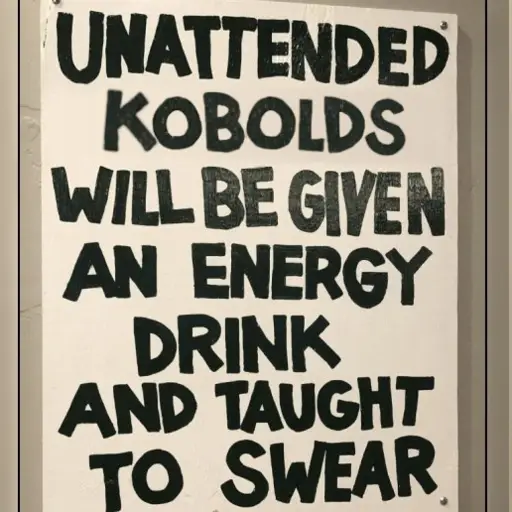 UNATTENDED
KOBOLDS
WILL BE GIVEN
AN ENERGY
DRINK
AND TAUGHT
TO SWEAR